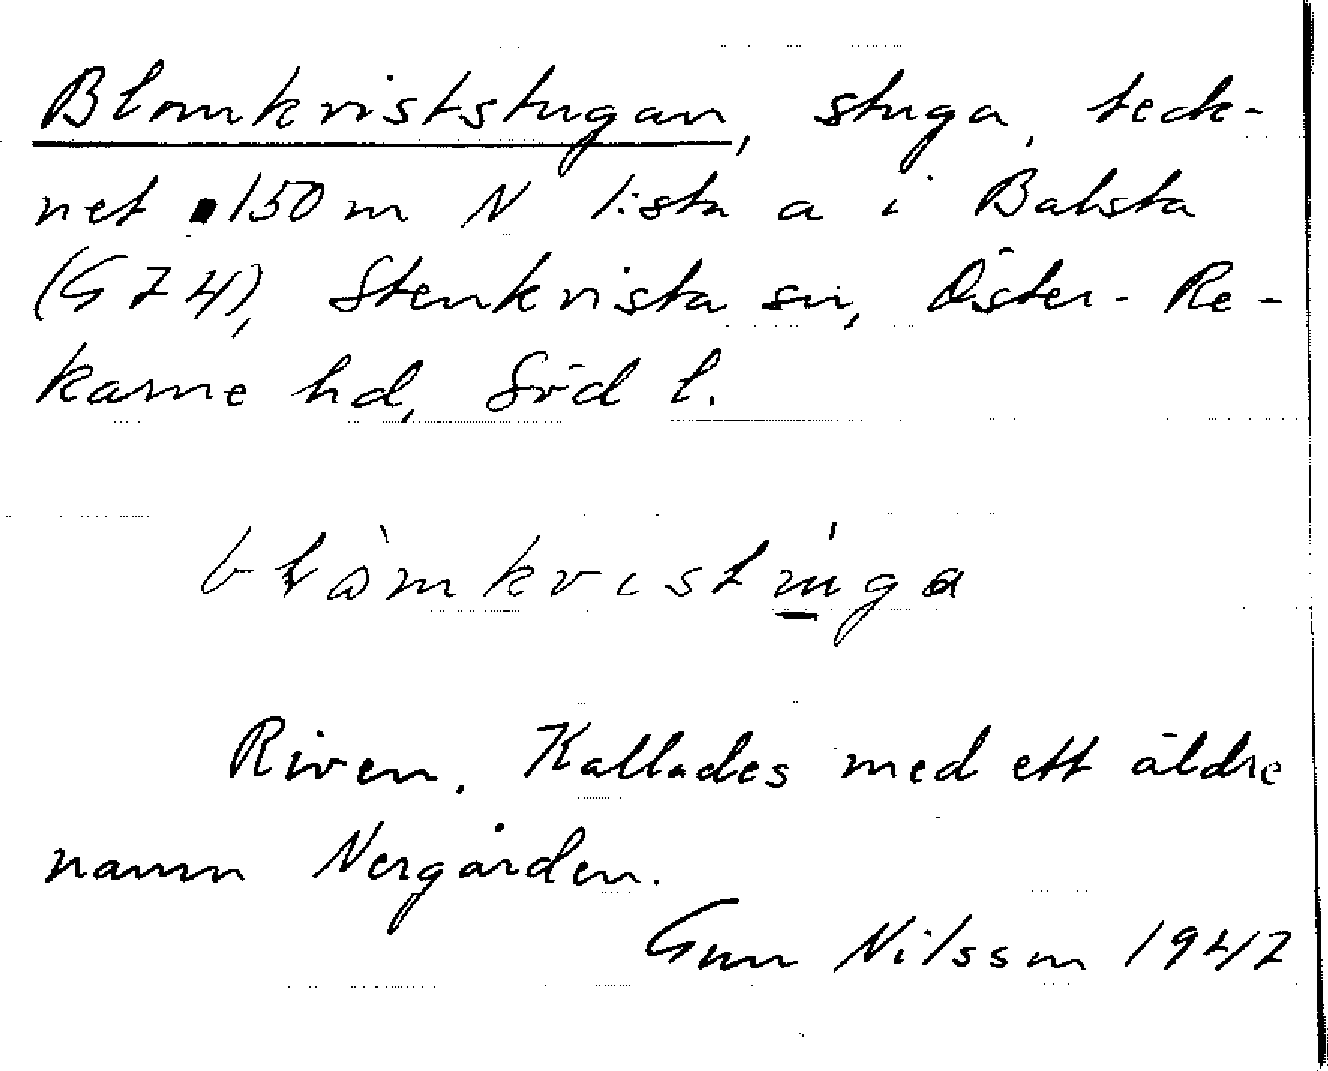 Blomkviststugan, stuga, teck-
net 150 m N 1:sta a i Balsta
(G 74), Stenkvista sn, Öster-Re-
karne hd, Söd l.
Riven. Kallades med ett äldre
namn Nergården.
Gun Nilsson 1947